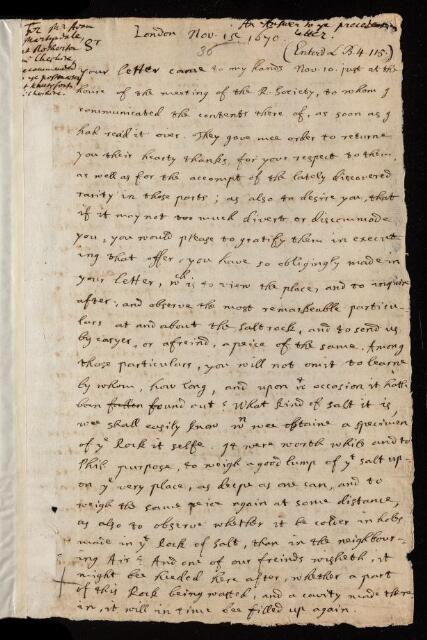 For mr from
Martyndale,
at Rotherton
in Cheshire
recommended
to ye postmaster
at Knutsford
Cheshire.
An Answer to ye preceding
letter:
London Nov. 15 1670
36
(Enterd L. B. 4. 115.)
Sr
Your letter came to my hands Nov. 10. just at the
houre of the meeting of the R. Society, to whom I
communicated the contents there of, as soon as I
had read it over. They gave mee order to returne
you their hearty thanks, for your respect to them,
as well as for the accompt of the lately discovered
rarity in those parts; as also to desire you, that
if it may not too much divert or discommode
you, you would please to gratify them in execut
ing that offer, you have so obligingly made in
your letter, wch is, to view the place, and to inquire
after, and observe the most remarkeable particu-
lars at and about the saltrock, and to send us
by caryer, or afreind, a peice of the same. Among
those particulars, you will not omit to learne
by whom, how long, and upon wt occasion it hath
been found out: What kind of salt it is,
wee shall easily know wn wee obtaine a specimen
of ye Rock it selfe. It were worth while and to
this purpose, to weigh a good lump of yt salt up-
on ye very place, as deepe as one can, and to
weigh the same peice again at some distance,
as also to observe whether it be colder in holes
made in yt Rock of Salt, than in the neighbour-
ing Air: And one of our freinds wisheth, it
might bee heeded here after, whether a part
of this Rock being wasted, and a cavity made there-
in, it will in time bee filled up again.